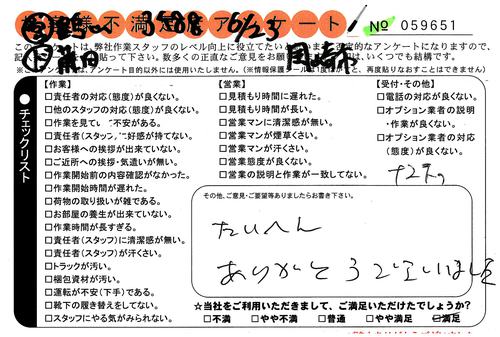 お客様不満足度アンケート
3588 6/23
№ 059651
岡崎市
このアンケートは、弊社作業スタッフのレベル向上に役立てたい
定的なアンケートになりますので、
貼って下さい。数多くの正直なご意見をお願
は、いくつでも結構です。
アンケート目的以外には使用いたしません。(※情報保護シール
、再度貼りなおすことはできません)
チェックリスト
【作業】
□責任者の対応(態度)が良くない。
□他のスタッフの対応(態度)が良くない。
□作業を見てい 不安がある。
□責任者(スタッフ 好感が持てない。
□お客様への挨拶が出来ていない。
□ご近所への挨拶・気遣いが無い。
□作業開始前の内容確認がなかった。
□作業開始時間が遅れた。
□荷物の取り扱いが雑である。
□お部屋の養生が出来ていない。
□作業時間が長すぎる。
□責任者(スタッフ)に清潔感が無い。
□責任者(スタッフ)が汗くさい。
□トラックが汚い。
□梱包資材が汚い。
□運転が不安(下手)である。
□靴下の履き替えをしてない。
□スタッフにやる気がみられない。
【営業】
□見積もり時間に遅れた。
□見積もり時間が長い。
□営業マンに清潔感が無い。
□営業マンが煙草くさい。
□営業マンが汗くさい。
□営業態度が良くない。
□営業の説明と作業が一致してない。
【受付・その他】
□電話の対応が良くない。
□オプション業者の説明
・作業が良くない。
□オプション業者の対応
(態度)が良くない。
その他、ご意見・ご要望等ありましたらお書き下さい。
たいへん
ありがとうございました
☆当社をご利用いただきまして、ご満足いただけたでしょうか?
□不満 □やや不満 □普通 □やや満足 □満足